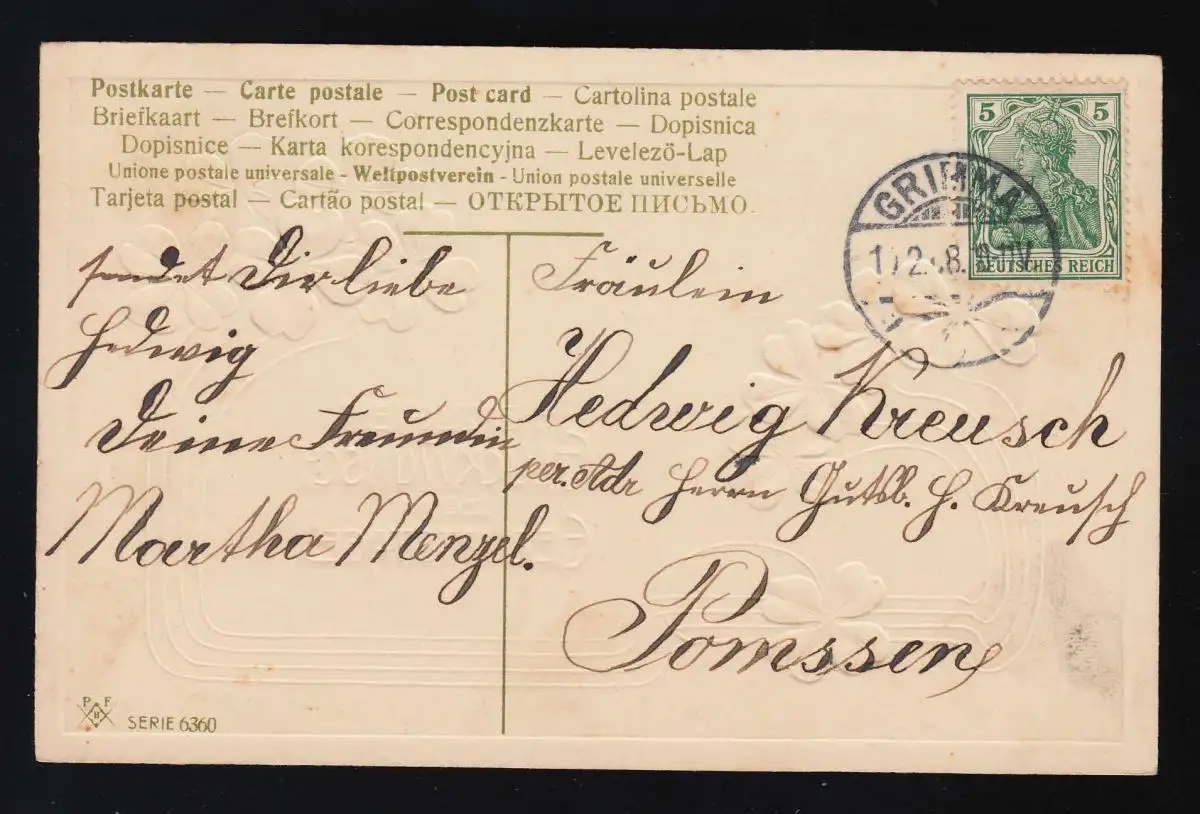 Postkarte — Carte postale — Post card — Cartolina postale
Briefkaart — Brefkort — Correspondenzkarte — Dopisnica
Dopisnice — Karta korespondencyjna — Levelező-Lap
Unione postale universale - Weltpostverein - Union postale universelle
Tarjeta postal — Cartão postal — ОТКРЫТОЕ ПИСЬМО.
5 5
DEUTSCHES REICH
GRIMMA
sendet Dir liebe
Hedwig
Deine Freundin
Martha Menzel.
Fräulein
Hedwig Kreusch
per. Adr Herrn Gutsb. H. Kreusch
Pomssen
P F
B
SERIE 6360